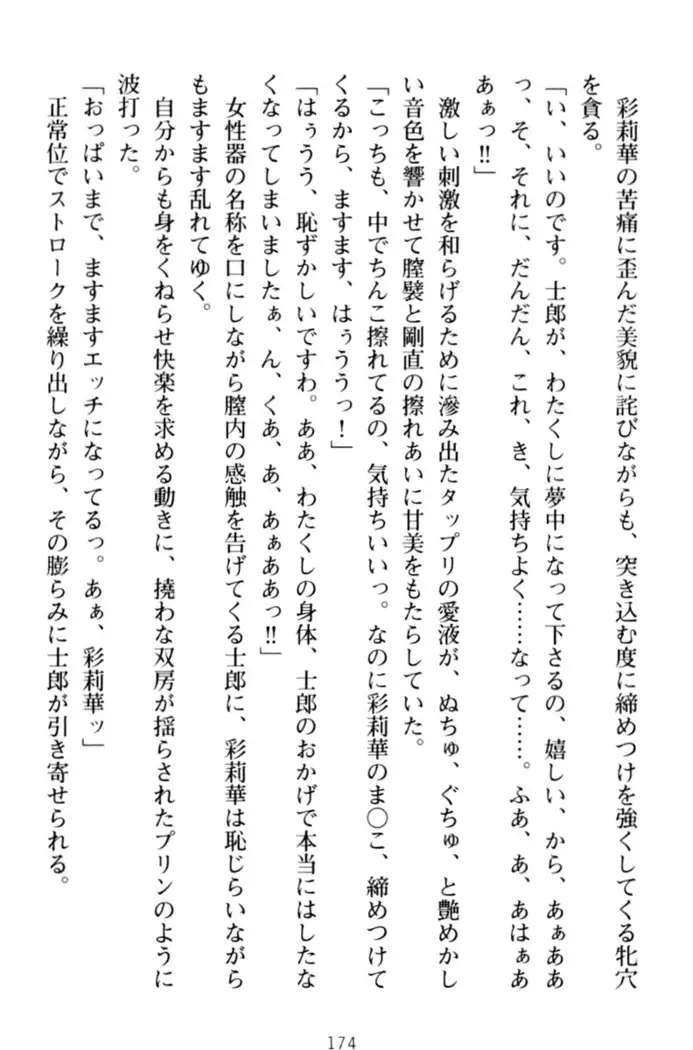 彩莉華の苦痛に歪んだ美貌に詫びながらも、突き込む度に締めつけを強くしてくる牝穴
を貪る。
「い、いいのです。士郎が、わたくしに夢中になって下さるの、嬉しい、から、あぁああ
っ、そ、それに、だんだん、これ、き、気持ちよく……なって……。ふあ、あ、あはぁぁ
あぁっ‼」
激しい刺激を和らげるために滲み出たタップリの愛液が、ぬちゅ、ぐちゅ、と艶めかし
い音色を響かせて膣襞と剛直の擦れあいに甘美をもたらしていた。
「こっちも、中でちんこ擦れてるの、気持ちいいっ。なのに彩莉華のま〇こ、締めつけて
くるから、ますます、はぅううっ！」
「はぅうう、恥ずかしいですわ。ああ、わたくしの身体、士郎のおかげで本当にはしたな
くなってしまいましたぁ、ん、くあ、あ、あぁああっ‼」
女性器の名称を口にしながら膣内の感触を告げてくる士郎に、彩莉華は恥じらいながら
もますます乱れてゆく。
自分からも身をくねらせ快楽を求める動きに、撓わな双房が揺らされたプリンのように
波打った。
「おっぱいまで、ますますエッチになってるっ。あぁ、彩莉華ッ」
正常位でストロークを繰り出しながら、その膨らみに士郎が引き寄せられる。
174